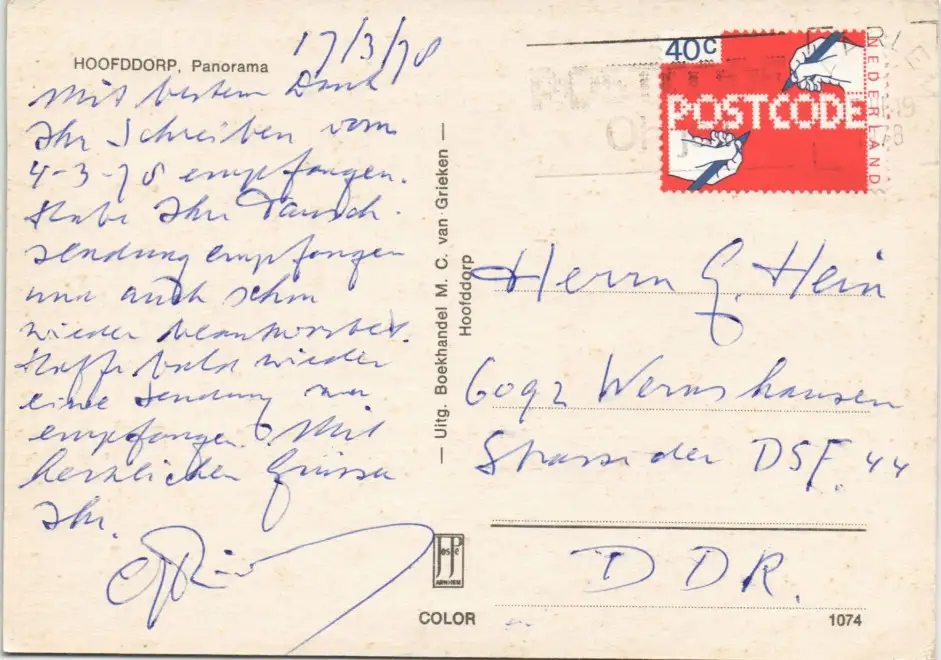 17/3/78
HOOFDDORP, Panorama
Mit bestem Dank
Ihr Schreiben vom
4-3-78 empfangen.
Habe Ihr Tausch-
sendung empfangen
und auch schon
wieder beantwortet.
Hoffe bald wieder
eine Sendung zu
empfangen. Mit
herzlichen Grüsse
Ihr.
— Uitg. Boekhandel M. C. van Grieken —
Hoofddorp
COLOR
40c
POSTCODE
NEDERLAND
Herrn G. Hein
6092 Wernshausen
Strasse der DSF. 44
DDR.
1074